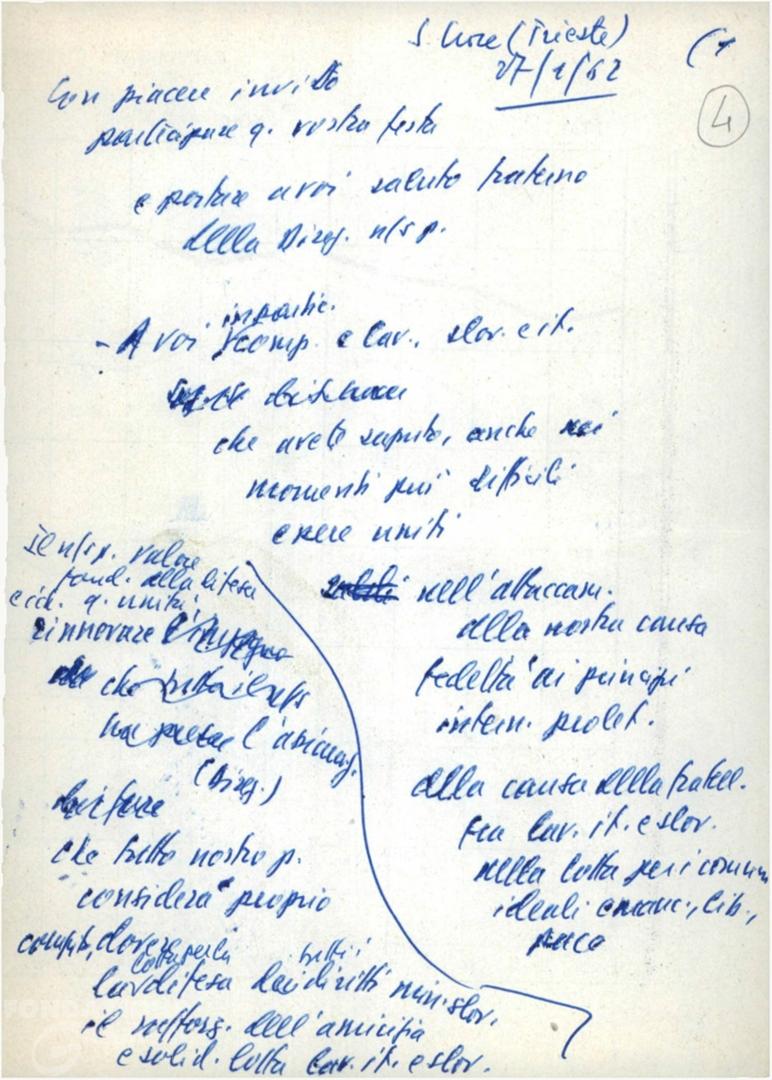 S. Croce (Trieste)
27/1/62
(1
4
Con piacere invito
partecipare q. vostra festa
e portare a voi saluto fraterno
della Direz. n/s p.
in partic.
- A voi comp. e lav. slov. e it.
che avete saputo, anche nei
momenti più difficili
essere uniti
nell'attaccam.
alla nostra causa
fedeltà ai principi
intern. prolet.
alla causa della fratell.
fra lav. it. e slov.
nella lotta per i comuni
ideali emanc., lib.,
pace
Il n/s p. valore
fond. alla difesa
q. unità
rinnovare
che
(Direz.)
che tutto nostro p.
considera proprio
dovere
tutti i
la difesa dei diritti min. slov.
il rafforz. dell'amicizia
e solid. lotta lav. it. e slov.